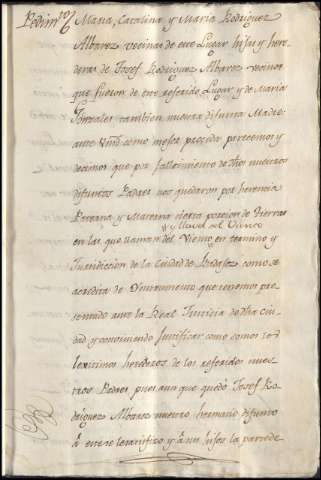 Pedimto Maria, Catalina y Maria Rodriguez
Albarez vecinas de este Lugar hijas y here
deras de Josef Rodriguez Albarez vecinos
que fueron de este referido Lugar y de Maria
Gonzalez tambien nuestra difunta Madre
ante Vmd como mejor proceda parecemos y
decimos que por fallecimiento de dhos nuestros
difuntos Padres nos quedaron por herencia
Paterna y Materna cierta porcion de tierras
en las que llaman del Viento en termino y
Jurisdiccion de la Ciudad de como se
acredita de que tenemos pre
sentado ante la Real Justicia de dha ciu
dad, y conviniendo Justificar como somos los
lexitimos herederos de los referidos nues
tros Padres pues aun que quedó Josef Ro
driguez Albarez nuestro hermano difunto
a este le y a sus hijos la parte de